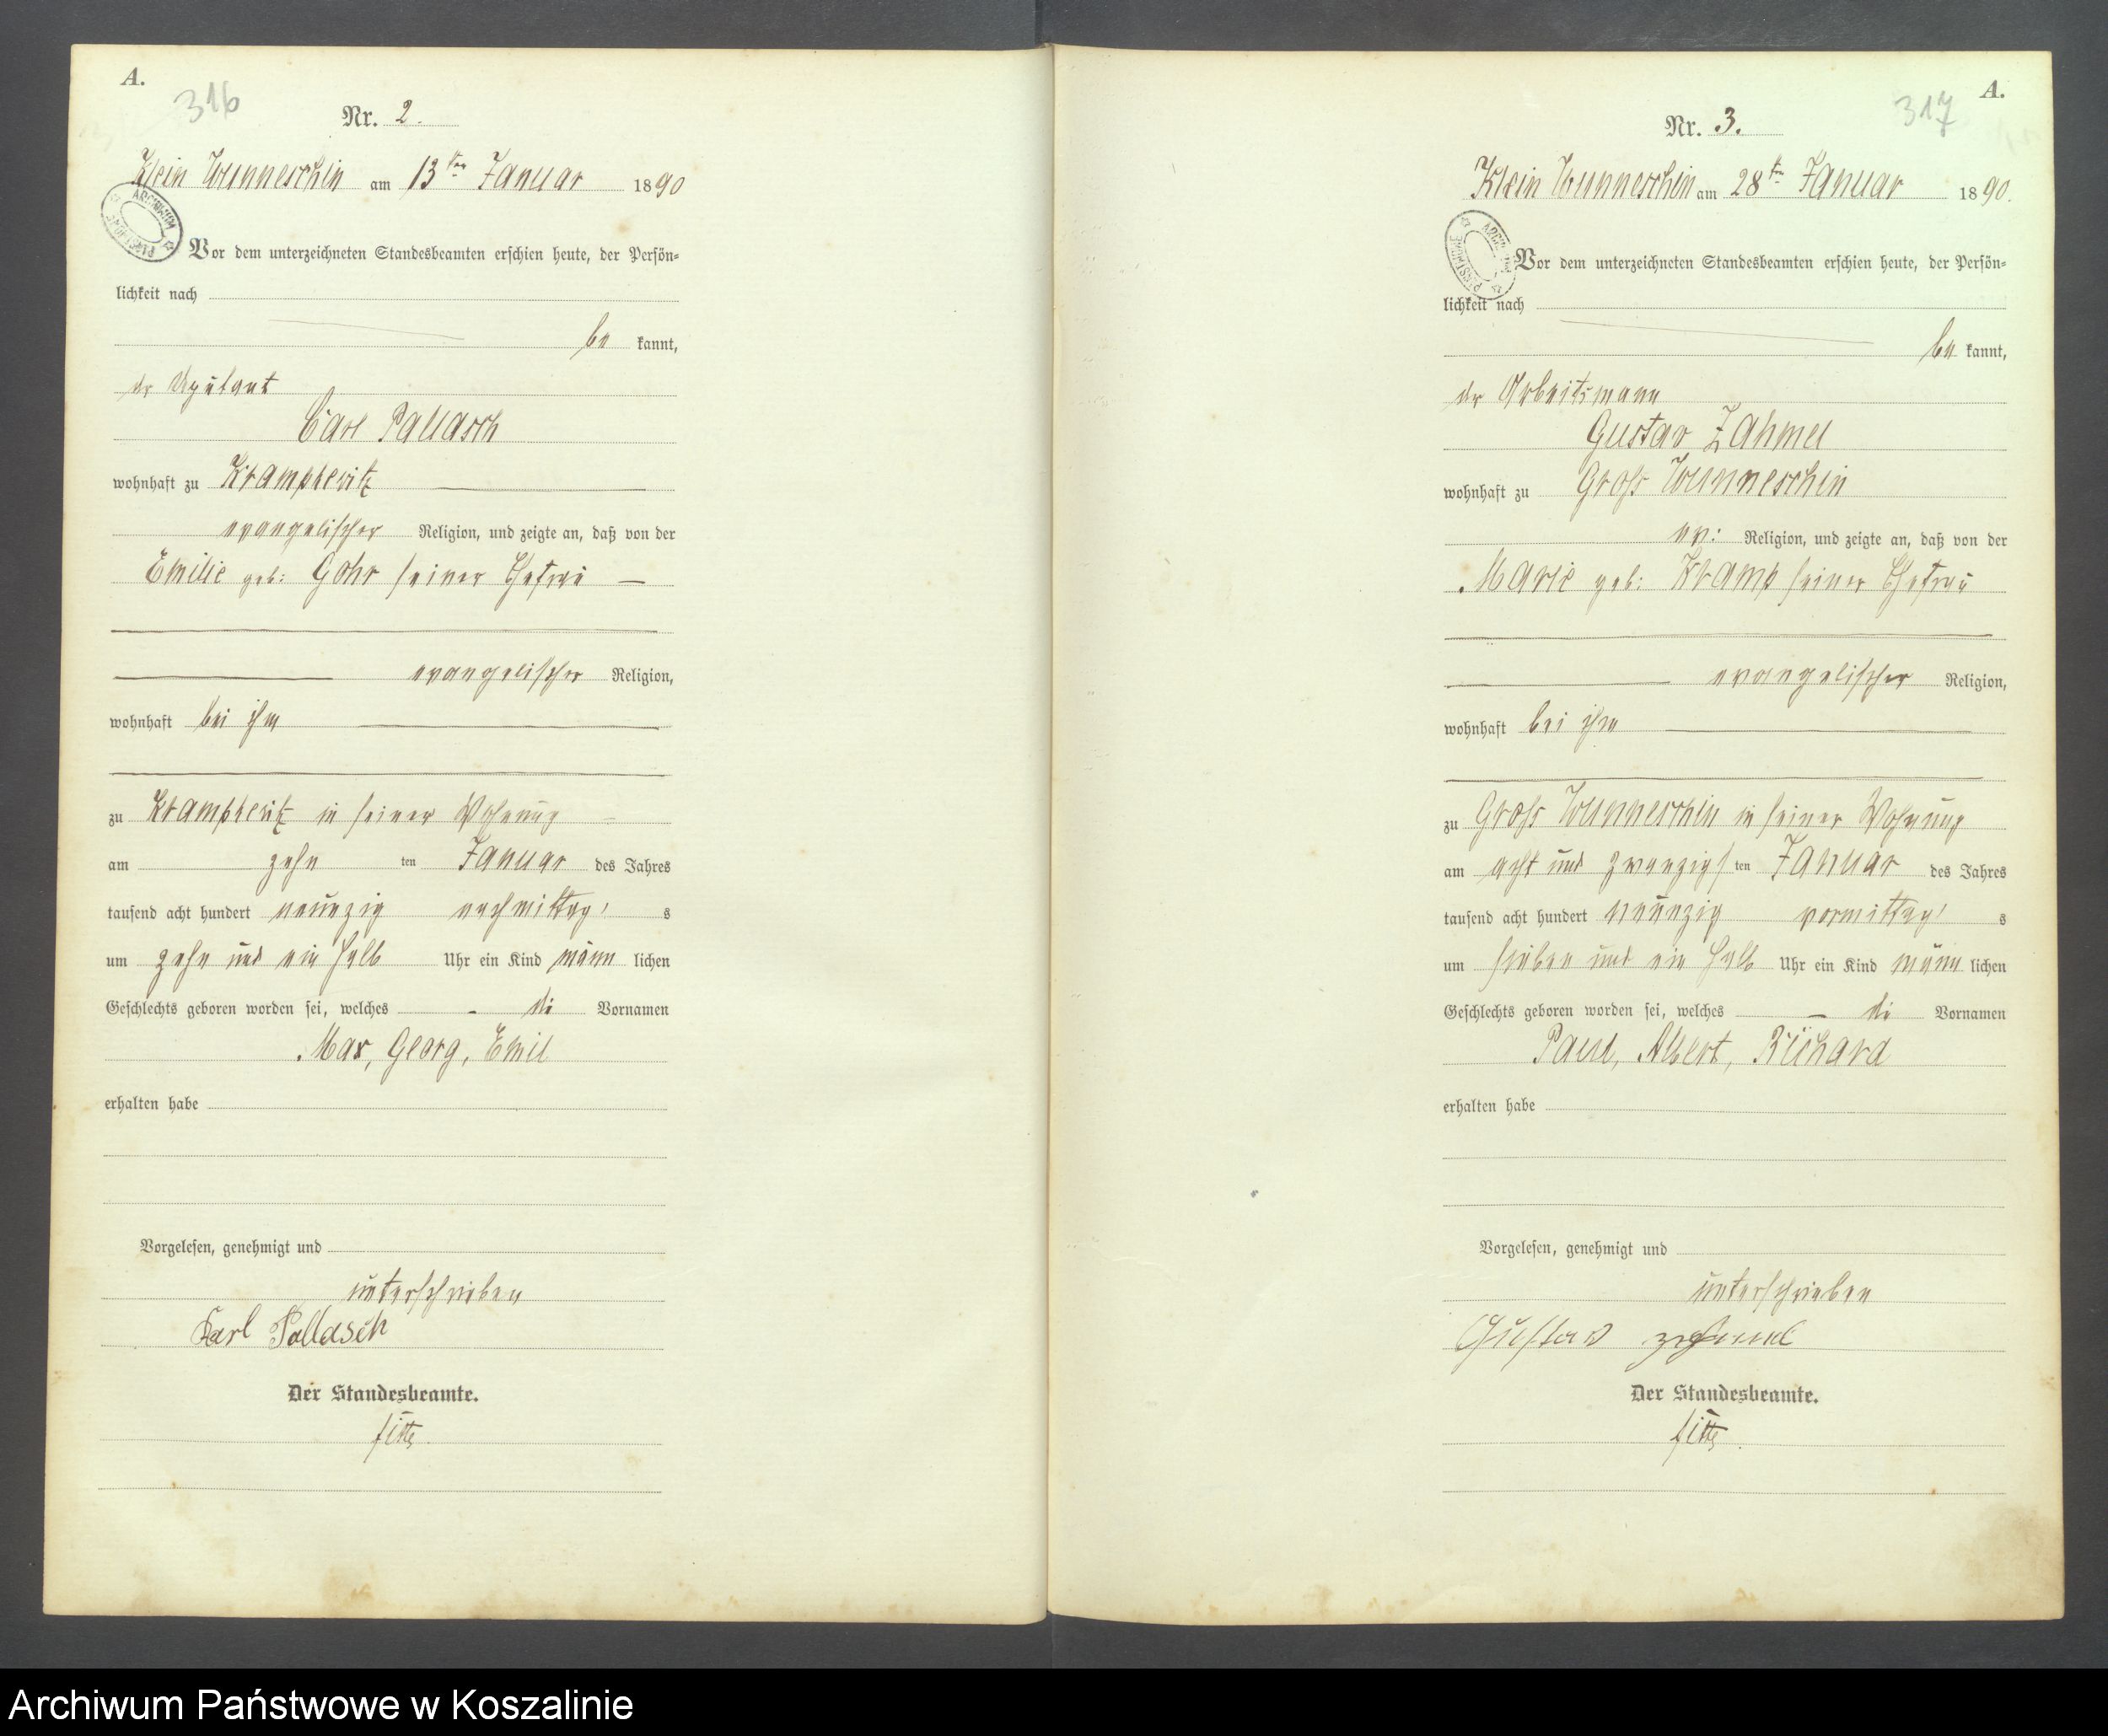 A.
316
Nr. 2.
Klein Wunneschin am 13ten Januar 1890
Vor dem unterzeichneten Standesbeamten erschien heute, der Persön=
lichkeit nach
be kannt,
der
Carl Pallasch
wohnhaft zu Krampkewitz
evangelischer Religion, und zeigte an, daß von der
Emilie geb: Gohr seiner Ehefrau
evangelischer Religion,
wohnhaft bei ihm
zu Krampkewitz in seiner Wohnung
am zehn ten Januar des Jahres
tausend acht hundert neunzig nachmittags s
um zehn und ein halb Uhr ein Kind männ lichen
Geschlechts geboren worden sei, welches die Vornamen
Max, Georg, Emil
erhalten habe
Vorgelesen, genehmigt und
unterschrieben
Karl Pallasch
Der Standesbeamte.
A.
317
Nr. 3.
Klein Wunneschin am 28ten Januar 1890.
Vor dem unterzeichneten Standesbeamten erschien heute, der Persön=
lichkeit nach
be kannt,
der Arbeitsmann
Gustav Zahmel
wohnhaft zu Gross Wunneschin
ev: Religion, und zeigte an, daß von der
Marie geb: Kramp seiner Ehefrau
evangelischer Religion,
wohnhaft bei ihm
zu Gross Wunneschin in seiner Wohnung
am acht und zwanzigs ten Januar des Jahres
tausend acht hundert neunzig vormittags s
um sieben und ein halb Uhr ein Kind männ lichen
Geschlechts geboren worden sei, welches die Vornamen
Paul, Albert, Richard
erhalten habe
Vorgelesen, genehmigt und
unterschrieben
Gustav Zahmel
Der Standesbeamte.
Archiwum Państwowe w Koszalinie